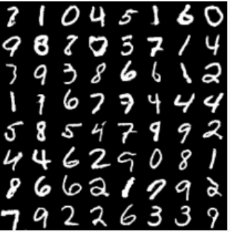 7 1 0 4 5 1 6 0
9 8 7 0 5 7 1 4
3 9 3 8 6 6 1 2
1 7 6 7 7 4 4 4
5 8 5 4 7 9 9 2
4 4 6 2 9 0 8 1
8 6 6 2 1 7 9 2
7 9 2 2 6 3 3 9